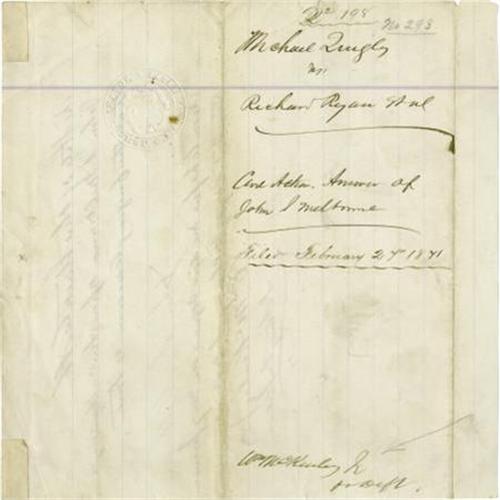 No 198
No 293
Michael Quigly
vs
Richard Ryan et al
Civil Action. Answer of
John S Melbourne
Filed February 27th 1871
Wm McKinley Jr
for Deft.